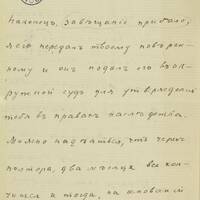 Наконецъ, завѣщанiе прибыло,
я его передалъ твоему повѣрен-
ному и онъ подалъ его въ ок-
ружной судъ для утвержденiя
тебя въ правахъ наслѣдства.
Можно надѣяться, что черезъ
полтора, два мѣсяца все кон-
чится и тогда, на основанiи